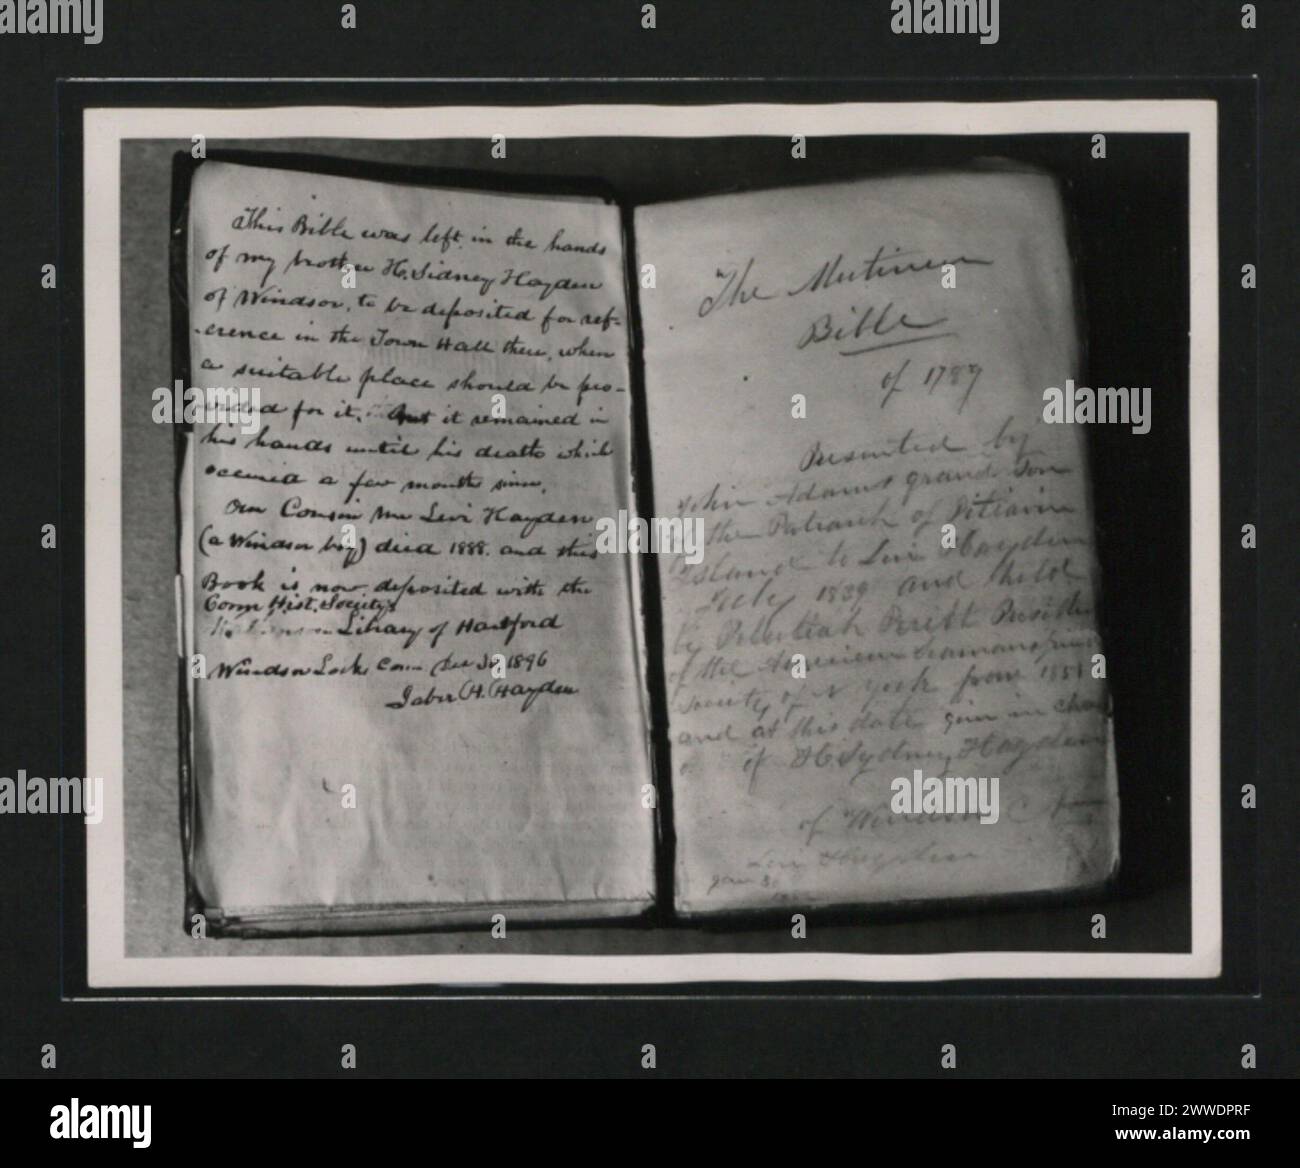 This Bible was left in the hands
of my brother H. Sidney Hayden
of Windsor, to be deposited for ref-
-erence in the Town Hall there, when
a suitable place should be pro-
-vided for it. But it remained in
his hands until his death which
occurred a few months since.
Our Cousin Mr Levi Hayden
(a Windsor boy) died 1888. and this
Book is now deposited with the
Conn Hist. Society's
Library of Hartford
Windsor Locks Conn Dec 30, 1896
Jabez H. Hayden
The Mutineer
Bible
of 1789
Presented by
John Adams grand Son
of the Patriarch of Pitcairn
Island to Levi Hayden
July 1839 and held
by Pelatiah Perit Preside
of the American Seamans
Society of N York from 185
and at this date given in cha
of H. Sydney Hayden
of Windsor C
Levi Hayden
a
alamy
Image ID: 2WWDPRF
www.alamy.com